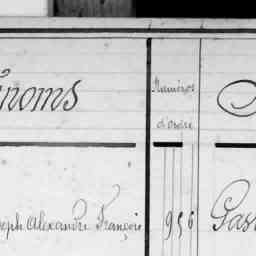 énoms
Numéros
d'ordre
seph Alexandre François
956
Gas